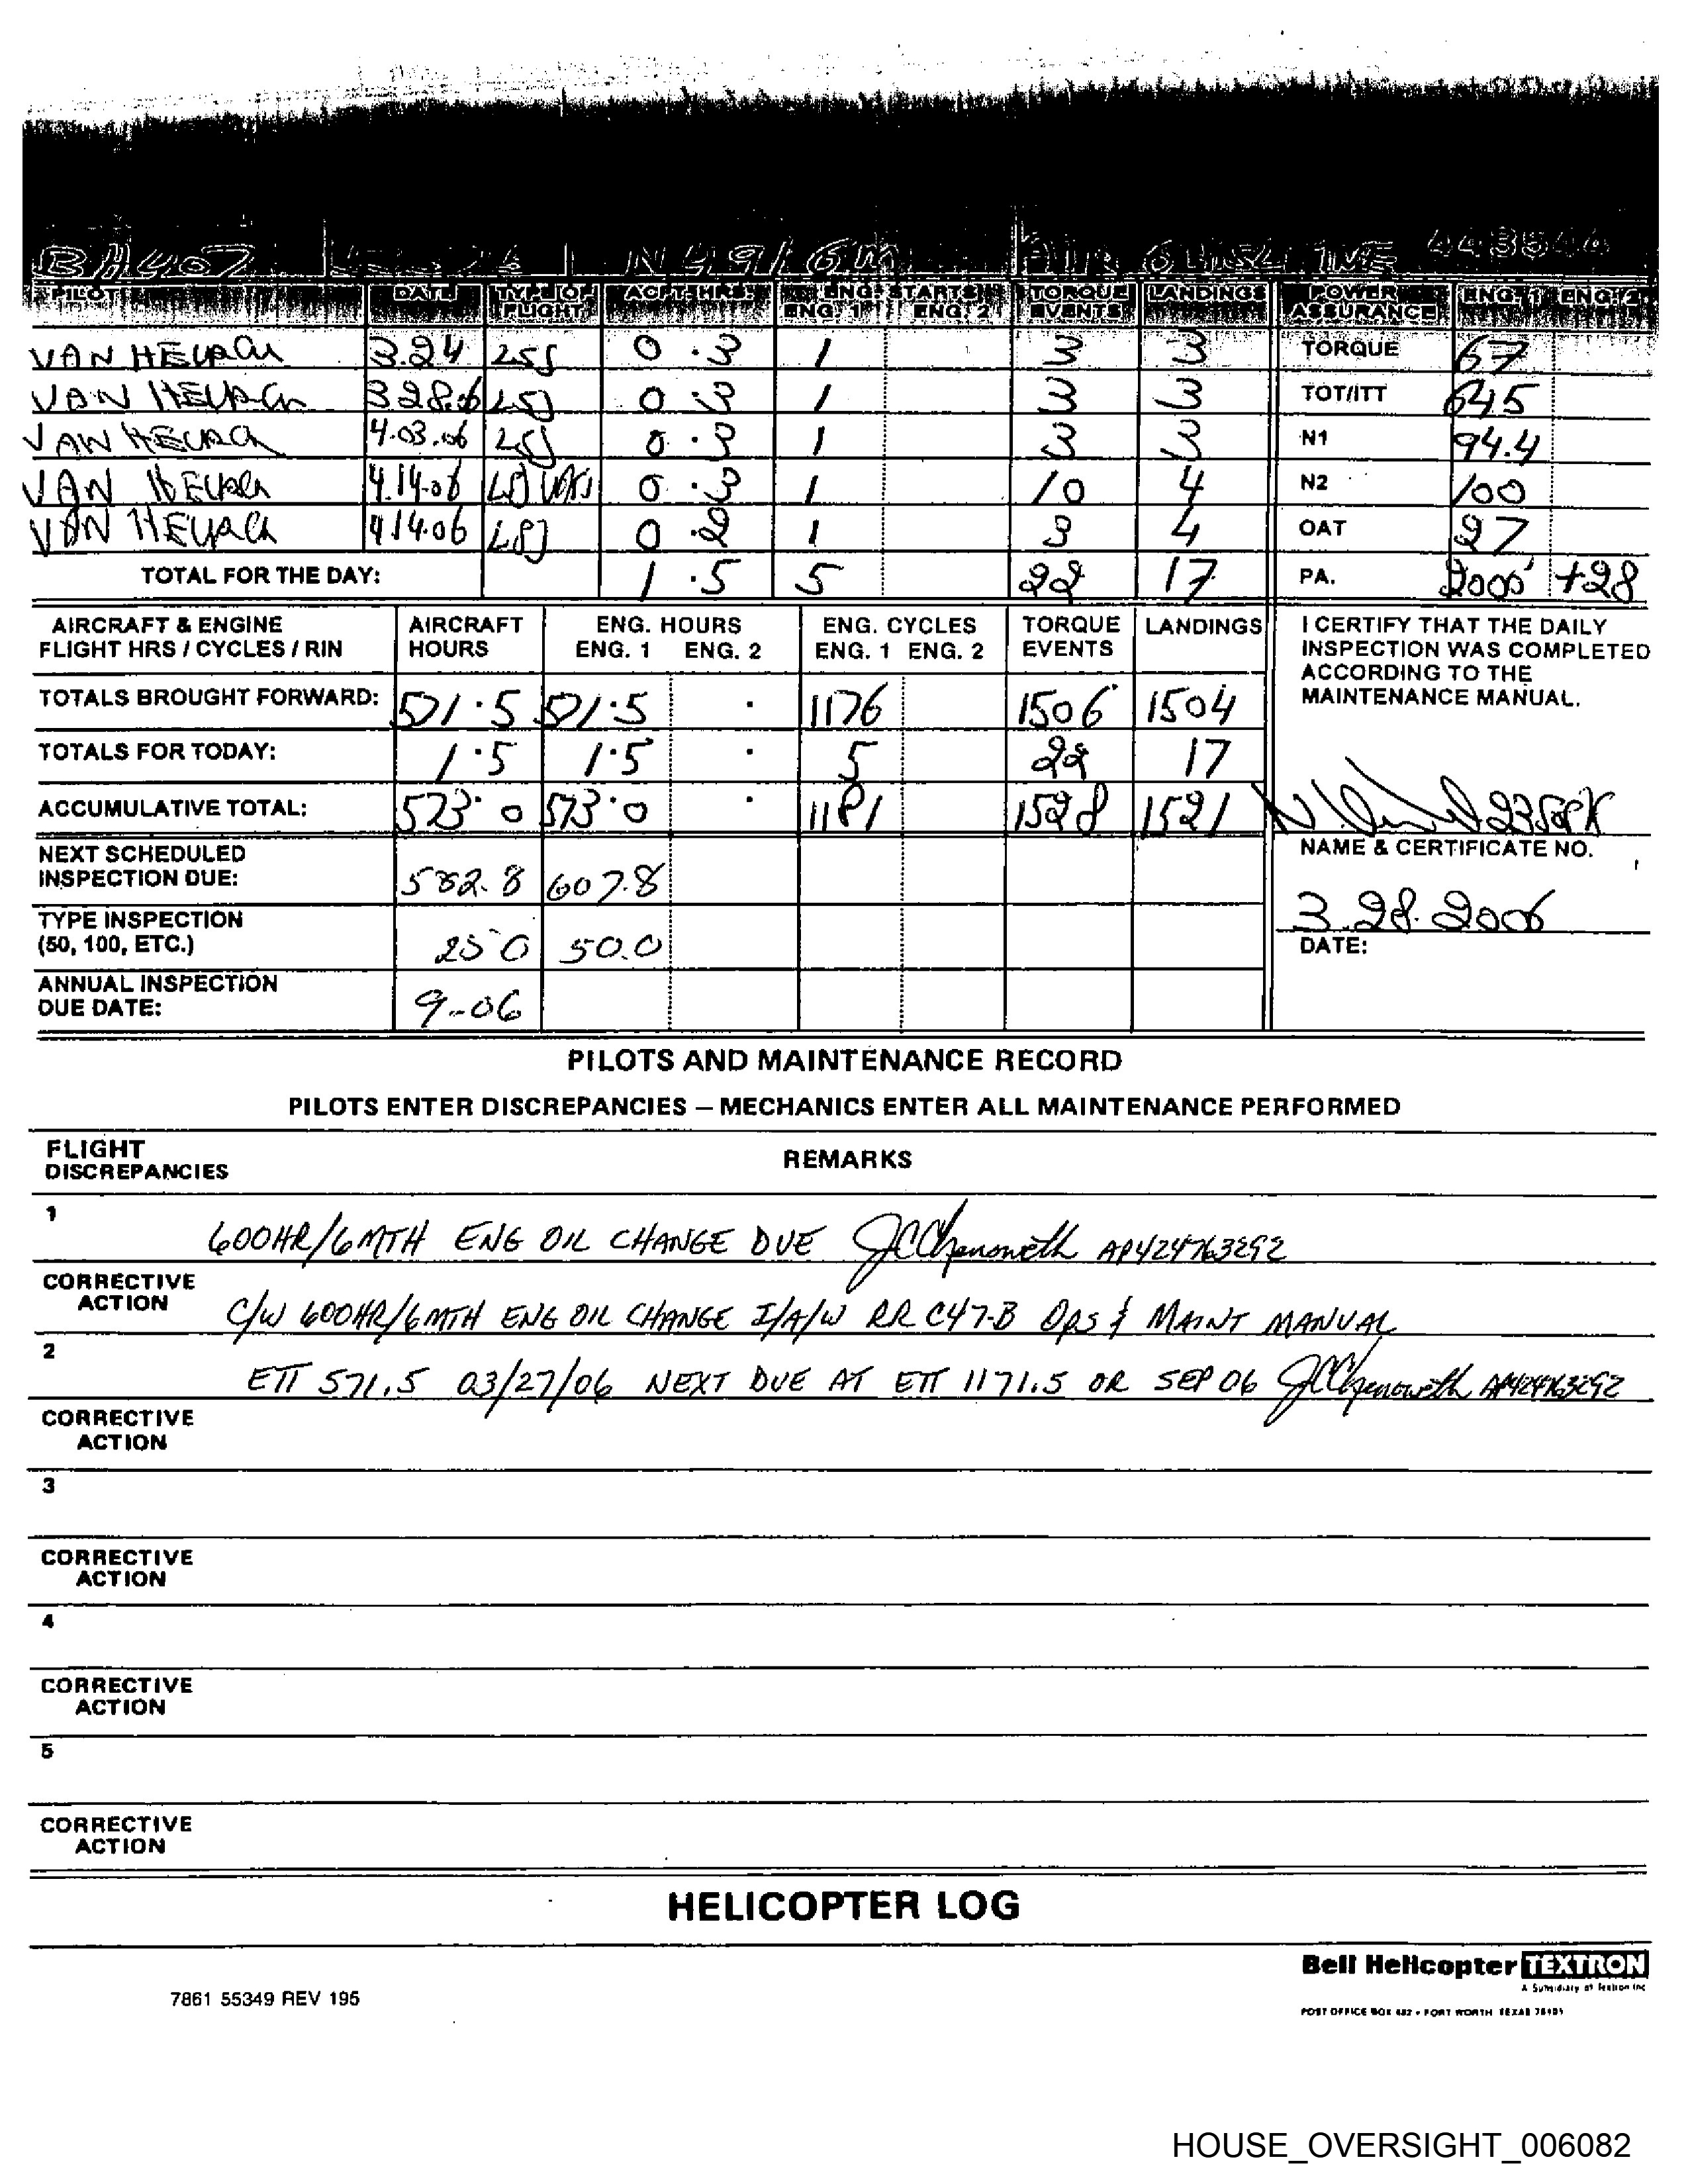 BH407 N491GM 443544
PILOT DATE TYPE OF FLIGHT ACFT HRS. ENG STARTS ENG. 1 ENG. 2 TORQUE EVENTS LANDINGS POWER ASSURANCE ENG. 1 ENG. 2
VAN 3.24 0.3 1 3 3 TORQUE 67
VAN 3 28.06 0.3 1 3 3 TOT/ITT 645
VAN 4.03.06 0.3 1 3 3 N1 94.4
VAN 4.14.06 0.3 1 10 4 N2 100
VAN 4 14.06 0.2 1 3 4 OAT 27
TOTAL FOR THE DAY: 1.5 5 22 17 PA. 2000' +28
AIRCRAFT & ENGINE FLIGHT HRS / CYCLES / RIN AIRCRAFT HOURS ENG. HOURS ENG. 1 ENG. 2 ENG. CYCLES ENG. 1 ENG. 2 TORQUE EVENTS LANDINGS
I CERTIFY THAT THE DAILY
INSPECTION WAS COMPLETED
ACCORDING TO THE
MAINTENANCE MANUAL.
TOTALS BROUGHT FORWARD: 571.5 571.5 . 1176 1506 1504
TOTALS FOR TODAY: 1.5 1.5 . 5 22 17
ACCUMULATIVE TOTAL: 573.0 573.0 . 1181 1528 1521
NAME & CERTIFICATE NO.
NEXT SCHEDULED
INSPECTION DUE: 582.8 607.8
3.28.2006
DATE:
TYPE INSPECTION
(50, 100, ETC.) 25 0 50.0
ANNUAL INSPECTION
DUE DATE: 9-06
PILOTS AND MAINTENANCE RECORD
PILOTS ENTER DISCREPANCIES — MECHANICS ENTER ALL MAINTENANCE PERFORMED
FLIGHT
DISCREPANCIES
REMARKS
1
600HR/6MTH ENG OIL CHANGE DUE JCChenoweth AP424763292
CORRECTIVE
ACTION
C/W 600HR/6MTH ENG OIL CHANGE I/A/W RR C47-B OPS & MAINT MANUAL
2
ETT 571.5 03/27/06 NEXT DUE AT ETT 1171.5 OR SEP 06 JCChenoweth AP424763292
CORRECTIVE
ACTION
3
CORRECTIVE
ACTION
4
CORRECTIVE
ACTION
5
CORRECTIVE
ACTION
HELICOPTER LOG
Bell Helicopter TEXTRON
A Subsidiary of Textron Inc
7861 55349 REV 195
POST OFFICE BOX 482 • FORT WORTH TEXAS 76101
HOUSE_OVERSIGHT_006082